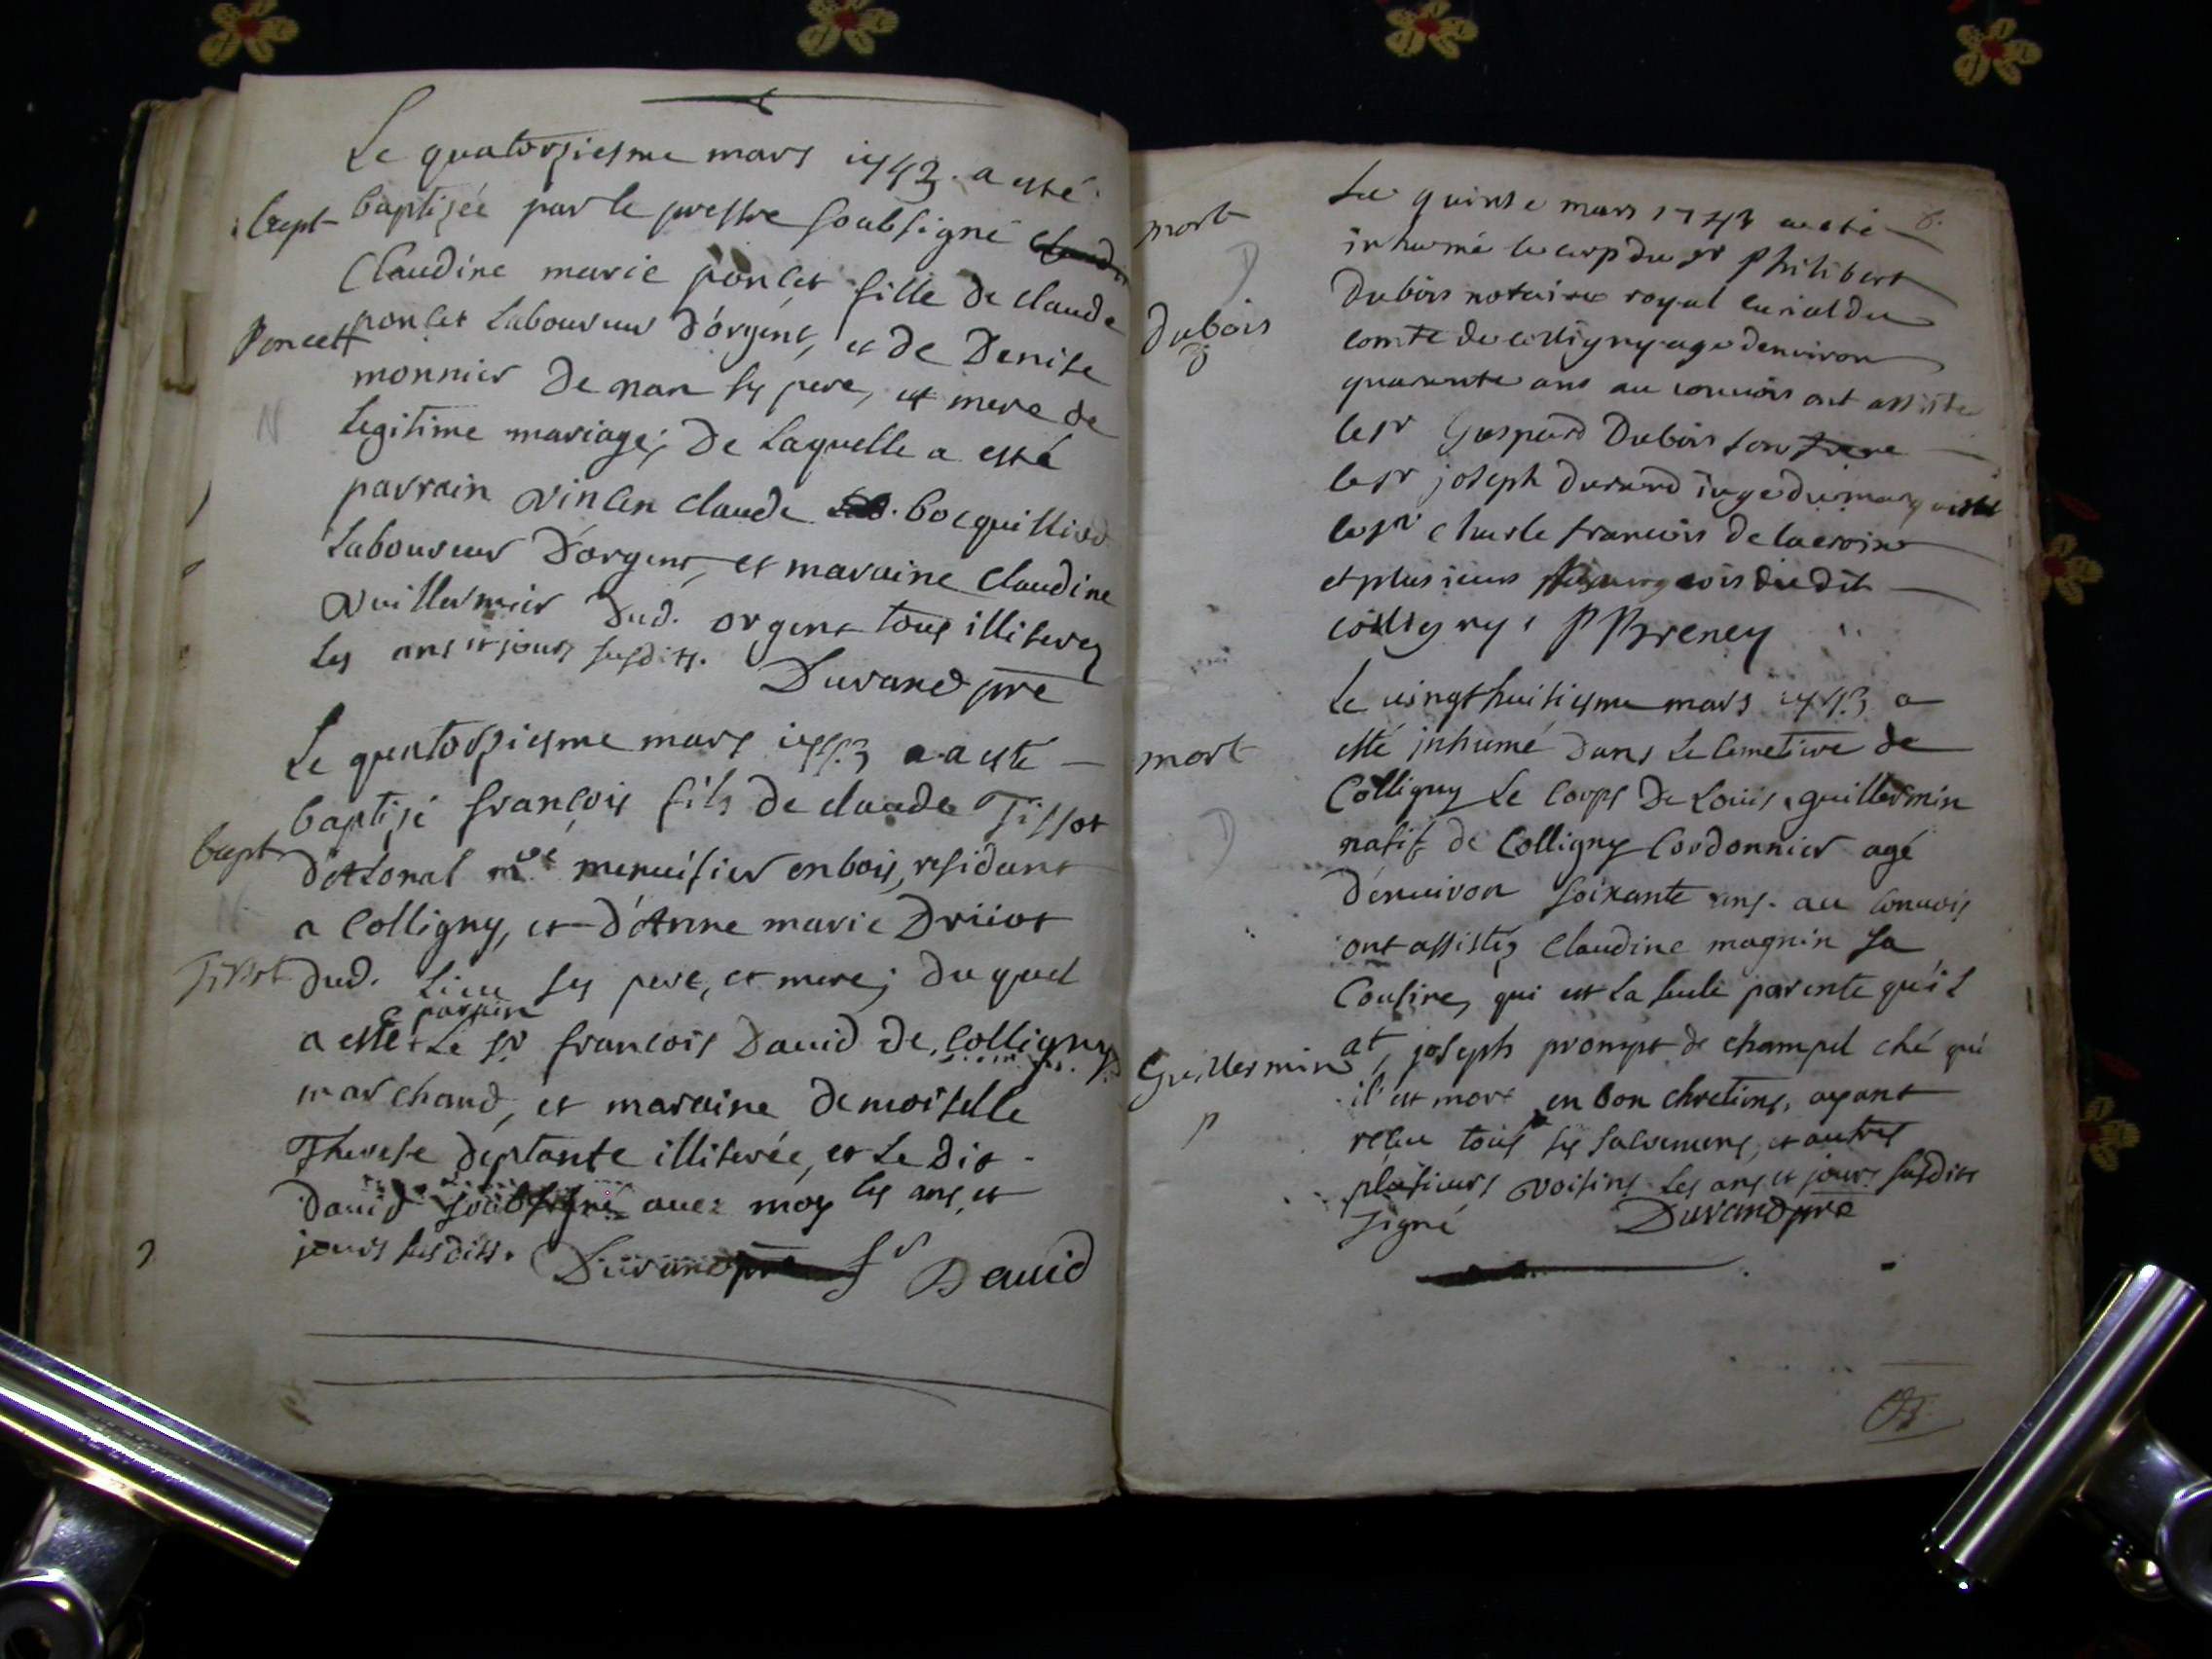 Le quatorziesme mars 1743. a esté
bapt
baptizée par le prestre soubsigné
Claudine marie poncet fille de claude
Poncet
poncet Laboureur d'orgent, et de Denise
monnier de nan ses pere, et mere de
N
Legitime mariage; de Laquelle a esté
parrain vincen claude bocquilliod
Laboureur d'orgent, et maraine claudine
vuillermier dud. orgent tous illiterez
les ans et jours susdits.
Durand pre
Le quatorziesme mars 1743 a a esté
baptizé françois fils de claude Tissot
bapt
menuisier en bois, residant
N
a Colligny, et d'Anne marie Driiot
Tissot
dud. Lieu ses pere, et mere; duquel
parrain
a esté Le sr francois David de Colligny
marchand, et maraine demoiselle
Therese deplante illiterée, et Le dit
David soubsigné avec moy les ans, et
jours susdits. Durand pre fr David
8.
mort
Le quinse mars 1743 a esté
inhumé le corp du sr philibert
D
Dubois notaire royal curial du
dubois
comté de colligny agé denviron
quarente ans au convois ont assisté
le sr Guspard Dubois son frere
le sr joseph durand iuge du marquisat
le sr charle francois de lacroix
et plusieurs bourgeois dudit
colligny, P Breney
Le vingt huitiesme mars 1743 a
mort
esté inhumé dans Le Cemetiere de
Colligny Le Corps de Louis guillermin
D
natif de Colligny Cordonnier agé
d'environ soixante ans. au convois
ont assistez claudine magnin sa
Cousine, qui est La seule parente qu'il
Guillermin
at, joseph prompt de champel ché qui
il est mort en bon chretiens, ayant
p
recu tous ses sacremens, et autres
plusieurs voisins les ans et jours susdits
signé
Durand pre